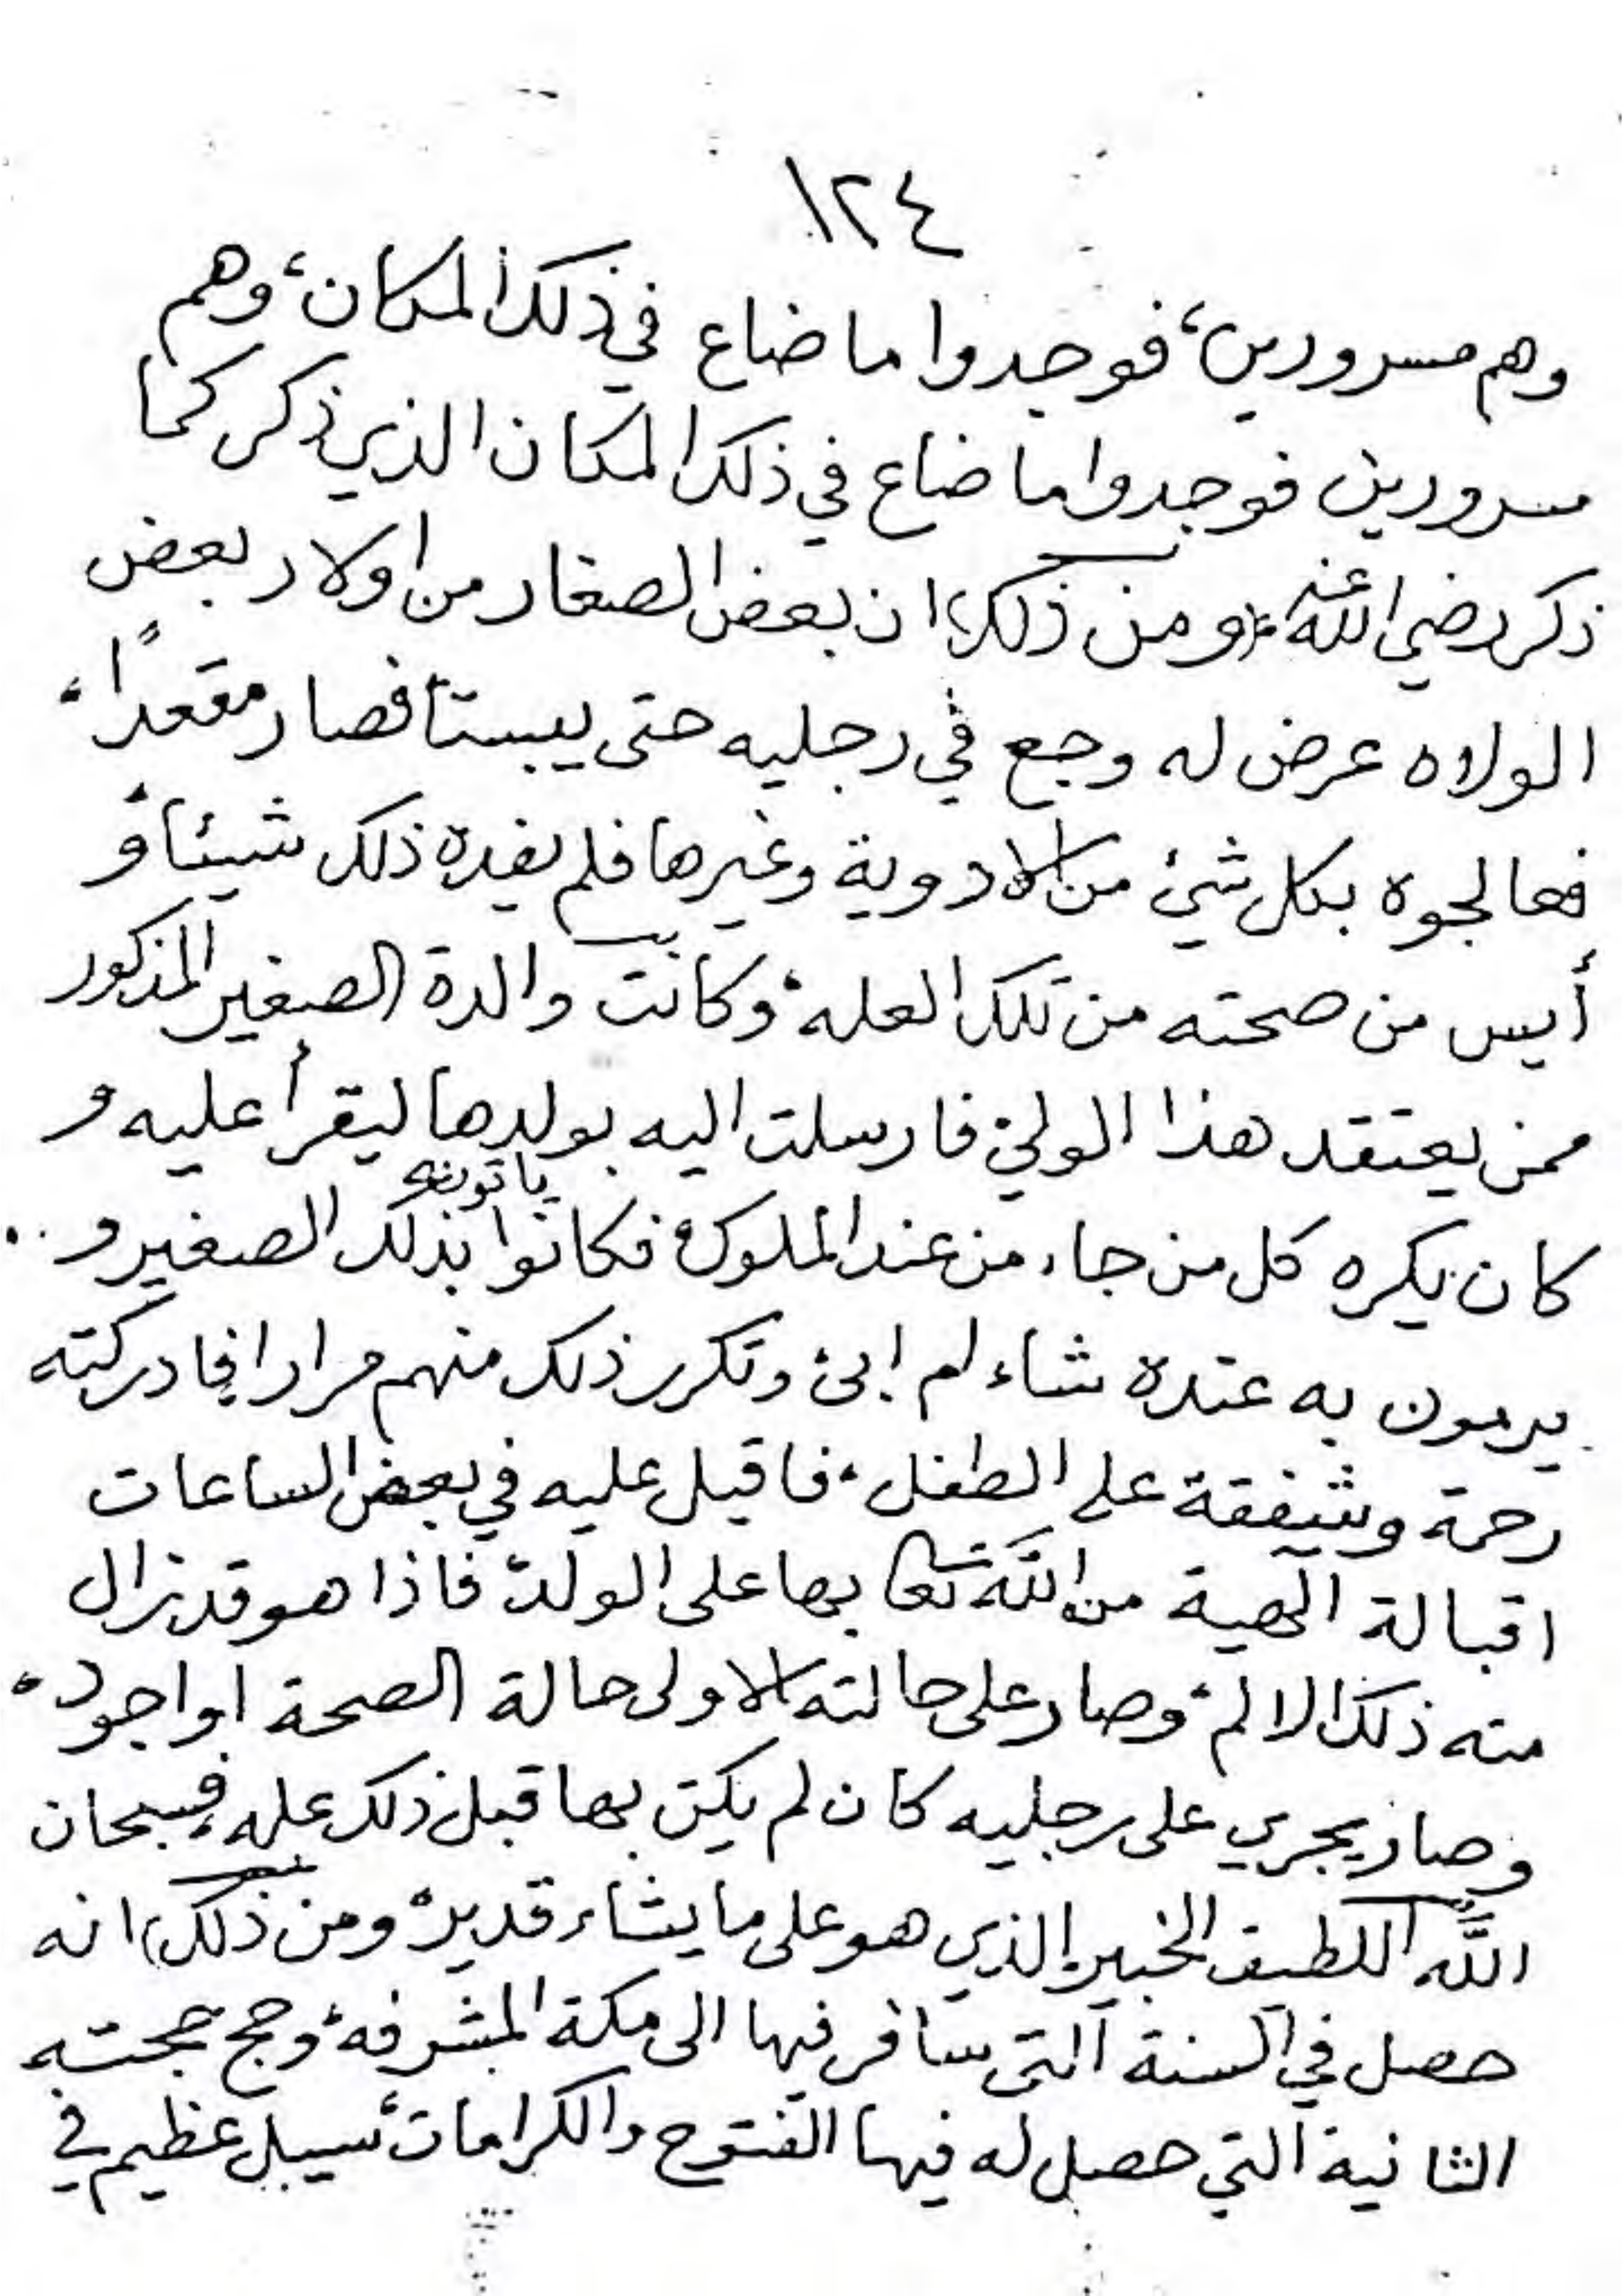 ١٢٤
وهم مسرورين، فوجدوا ما ضاع في ذلك المكان، وهم
مسرورين فوجدوا ما ضاع في ذلك المكان الذي ذكر كما
ذكر رضي الله عنه، (ومن ذلك) ان بعض الصغار من اولاد بعض
الولاه عرض له وجع في رجليه حتى يبستا فصار مقعداً،
فعالجوه بكل شئ من الادوية وغيرها فلم يفده ذلك شيئا، و
أيس من صحته من تلك العله، وكانت والدة الصغير المذكور
ممن يعتقد هذا الولي، فارسلت اليه بولدها ليقرأ عليه و
كان يكره كل من جاء من عند الملوك، فكانوا ياتونه بذلك الصغير و
يرمون به عنده شاء ام ابى، وتكرر ذلك منهم مرارا فادركته
رحمة وشفقة على الطفل، فاقبل عليه في بعض الساعات
اقبالة آلهية من الله تعا بها على الولد، فاذا هو قد زال
منه ذلك الالم، وصار على حالته الاولى حالة الصحة او اجود،
وصار يجري على رجليه كان لم يكن بها قبل ذلك عله، فسبحان
الله اللطيف الخبير الذي هو على ما يشاء قدير، ومن ذلك) انه
حصل في السنة التى سافر فيها الى مكة المشرفه، وحج حجته
الثانية التي حصل له فيها الفتوح والكرامات، سيل عظيم في